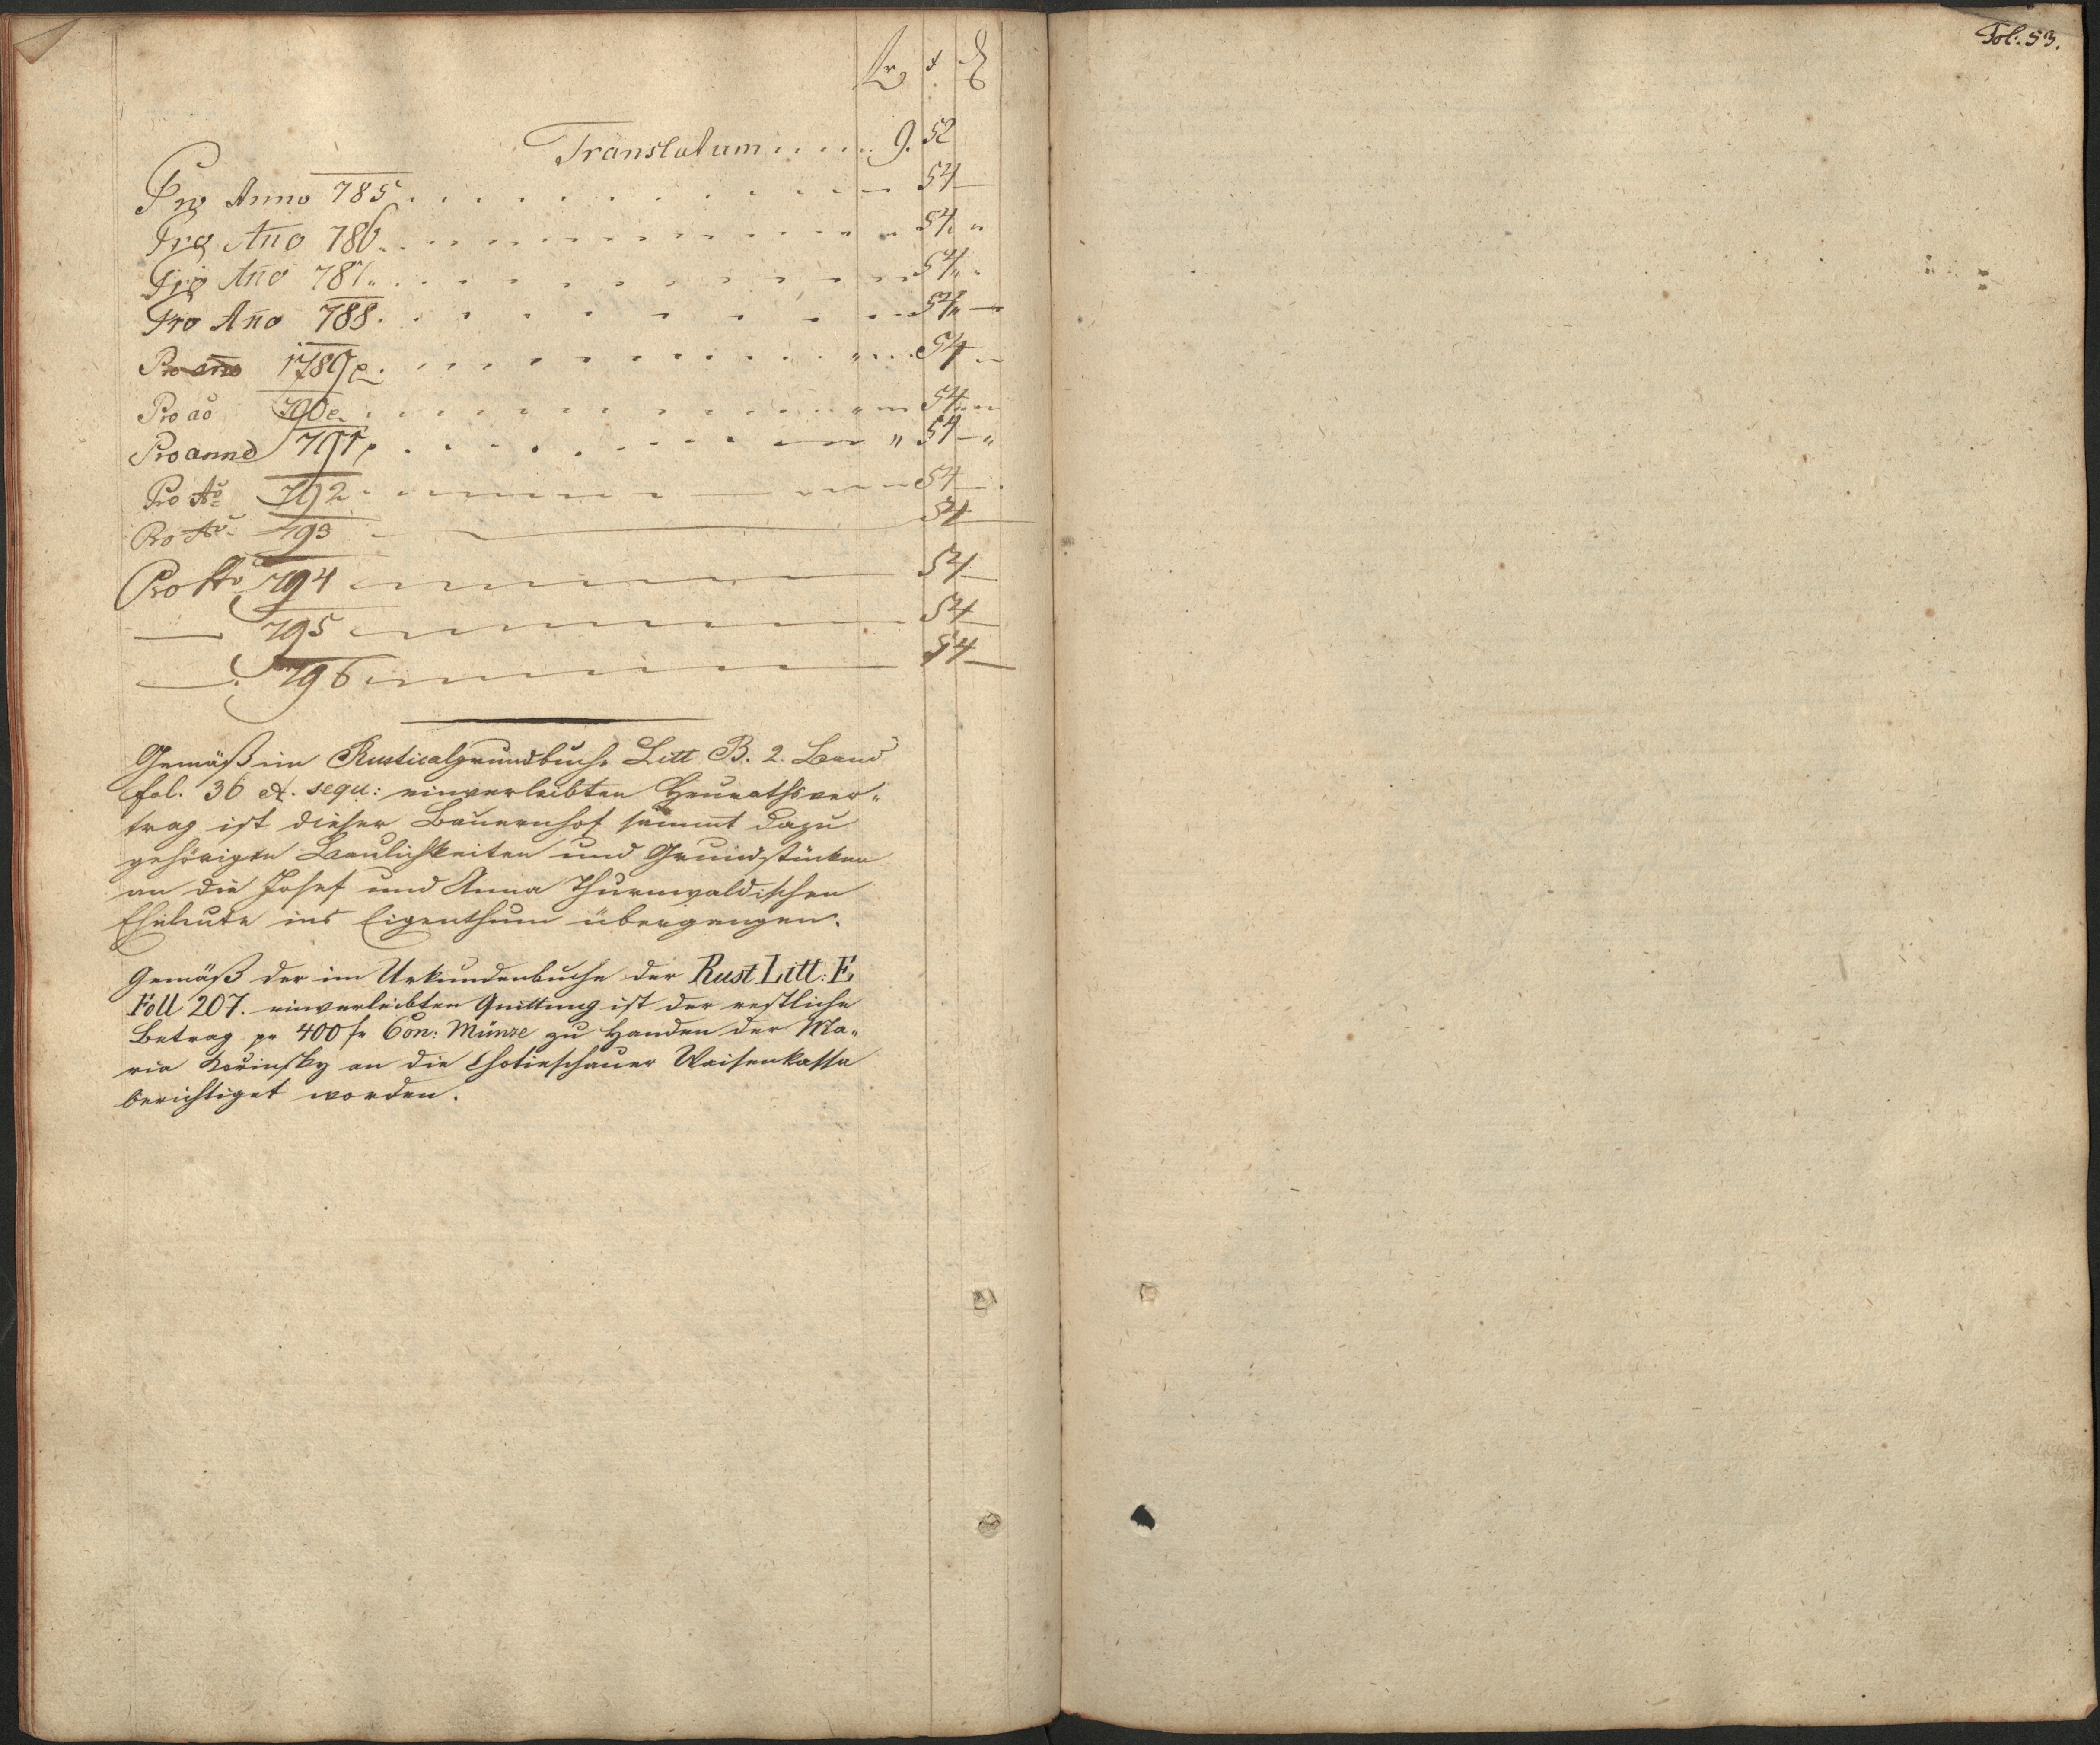 fr x d
Translatum . . . . . 9. 52
Pro Anno 785 . . . . . . . . . . — 54 —
Pro Año 786 . . . . . . . . . . " 54 "
Pro Año 787 . . . . . . . . . . " 54 "
Pro Año 788 . . . . . . . . . . — 54 —
Pro año 1789 . . . . . . . . . . " 54 —
Pro aõ 790 . . . . . . . . . . " 54 —
Pro anno 791 . . . . . . . . . . " 54 — "
Pro Aõ 792 . — — — — 54 — .
Pro Aõ 793 — 54 —
Pro Aõ 794 — — — — 54 —
— 795 — — — — 54 —
— 796 — — — — 54 —
Gemäß im Rusticalgrundbuche Litt B. 2. Band
fol. 36 et. sequ: einverleibten Heurathsver„
trag ist dieser Bauernhof sammt dazu
gehörigen Baulichkeiten und Grundstücken
an die Josef und Anna Thurnwaldischen
Eheleute ins Eigenthum übergangen.
Gemäß der im Urkundenbuche der Rust Litt: E
Foll 207. einverleibten Quittung ist der restliche
Betrag pr 400 fr Con: Münze zu Handen der Ma„
ria Kořinsky an die Chotieschauer Waisenkassa
berichtiget worden.
Fol: 53.